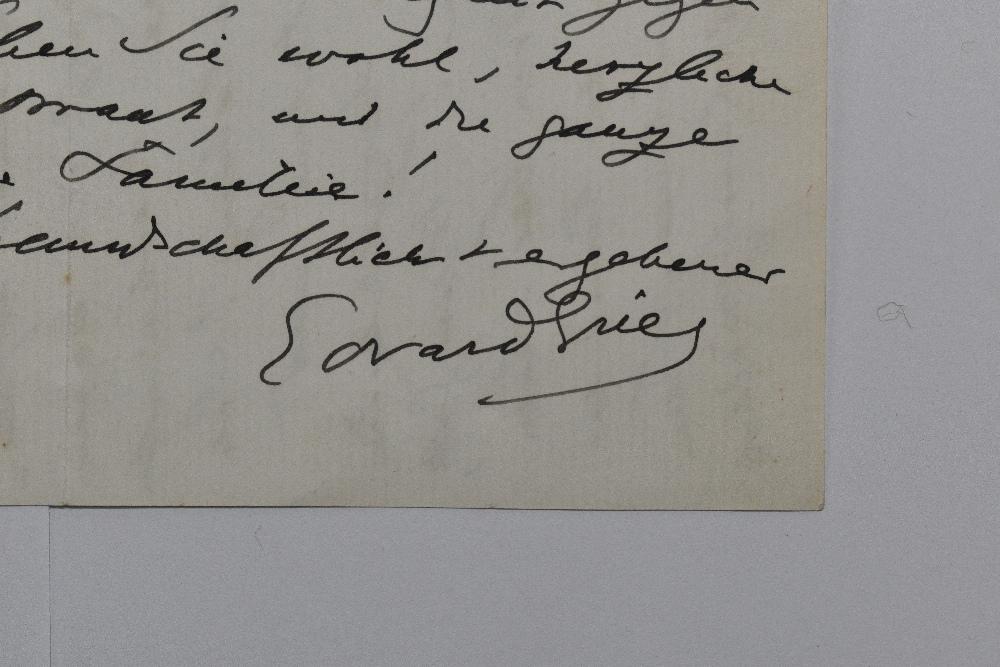 gegen
Sie wohl, herzliche
und die ganze
Familie!
freundschaftlich + ergebener
Edvard Grieg